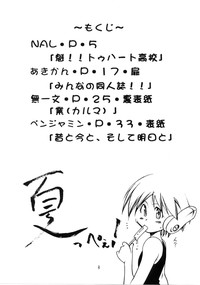 ～もくじ～
NAL・P・5
「魁！！トゥハート高校」
あきかん・P・17・扉
「みんなの同人誌！！」
無一文・P・25・裏表紙
「業（カルマ）」
ベンジャミン・P・33・表紙
「昔と今と、そして明日と」
夏
っぺぇ！